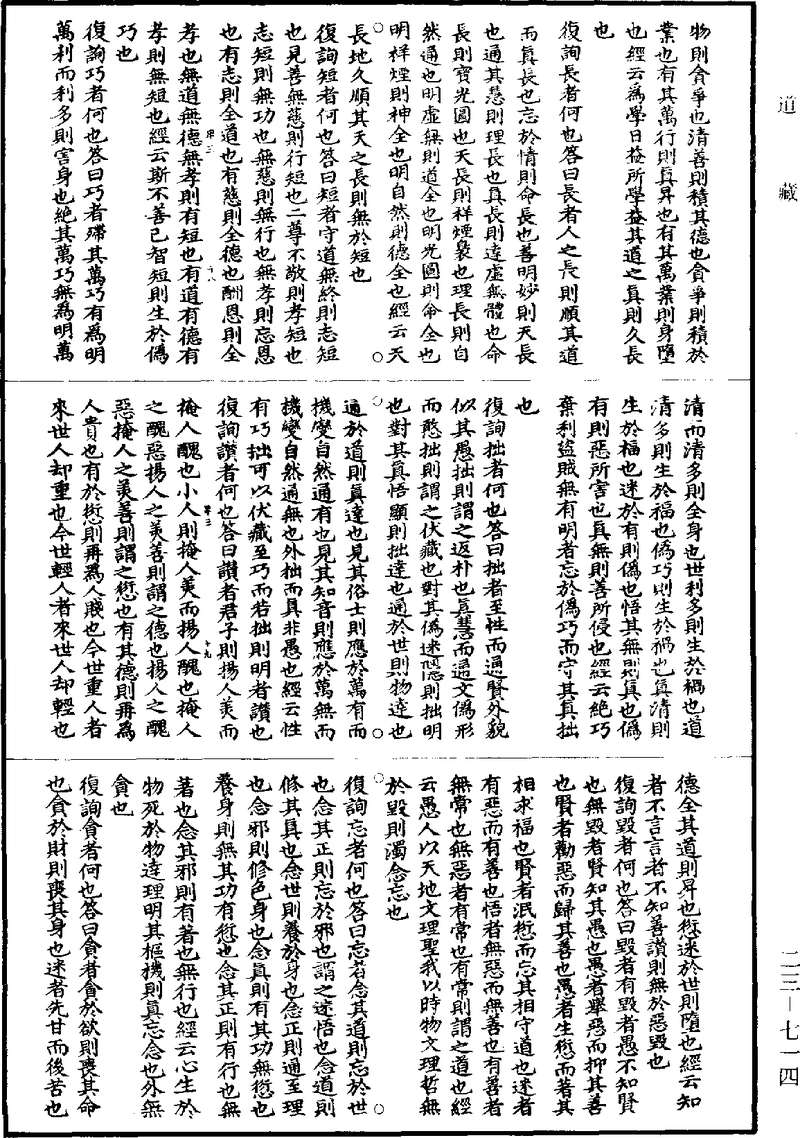 道藏
物則貪爭也清善則積其德也貪爭則積於
業也有其萬行則真昇也有其萬業則身墮
也經云為學日益所學益其道之真則久長
也
復詢長者何也答曰長者人之長則順其道
而真長也忘於情則命長也善明妙則天長
也通其慧則理長也真長則達虛無體也命
長則寶光圓也天長則祥煙裊也理長則自
然通也明虛無則道全也明光圓則命全也
明祥煙則神全也明自然則德全也經云天
長地久順其天之長則無於短也
復詢短者何也答曰短者守道無終則志短
也見善無慈則行短也二尊不敬則孝短也
志短則無功也無慈則無行也無孝則忘恩
也有志則全道也有慈則全德也酬恩則全
孝也無道無德無孝則有短也有道有德有
孝則無短也經云斯不善已智短則生於偽
巧也
復詢巧者何也答曰巧者殢其萬巧有為明
萬利而利多則害身也絕其萬巧無為明萬
清而清多則全身也世利多則生於禍也道
清多則生於福也偽巧則生於禍也真清則
生於福也迷於有則偽也悟其無則真也偽
有則惡所害也真無則善所侵也經云絕巧
棄利盜賊無有明者忘於偽巧而守其真拙
也
復詢拙者何也答曰拙者至性而通賢外貌
似其愚拙則謂之返朴也真慧而通文偽形
而憨拙則謂之伏藏也對其偽迷隱則拙明
也對其真悟顯則拙達也通於世則物達也
通於道則真達也見其俗士則應於萬有而
機變自然通有也見其知音則應於萬無而
機變自然通無也外拙而真非愚也經云性
有巧拙可以伏藏至巧而若拙則明者讚也
復詢讚者何也答曰讚者君子則揚人美而
掩人醜也小人則掩人美而揚人醜也掩人
之醜惡揚人之美善則謂之德也揚人之醜
惡掩人之美善則謂之愆也有其德則再為
人貴也有於愆則再為人賤也今世重人者
來世人却重也今世輕人者來世人却輕也
德全其道則昇也愆迷於世則墮也經云知
者不言言者不知善讚則無於惡毀也
復詢毀者何也答曰毀者有毀者愚不知賢
也無毀者賢知其愚也愚者舉惡而抑其善
也賢者勸惡而歸其善也愚者生愆而著其
相求福也賢者泯愆而忘其相守道也迷者
有惡而有善也悟者無惡而無善也有善者
無常也無惡者有常也有常則謂之道也經
云愚人以天地文理聖我以時物文理哲無
於毀則濁念忘也
復詢忘者何也答曰忘若念其道則忘於世
也念其正則忘於邪也謂之迷悟也念道則
修其真也念世則養於身也念正則通至理
也念邪則修色身也念真則有其功無愆也
養身則無其功有愆也念其正則有行也無
著也念其邪則有著也無行也經云心生於
物死於物達理明其樞機則真忘念也外無
貪也
復詢貪者何也答曰貪者貪於欲則喪其命
也貪於財則喪其身也迷者先甘而後苦也
二三－七一四